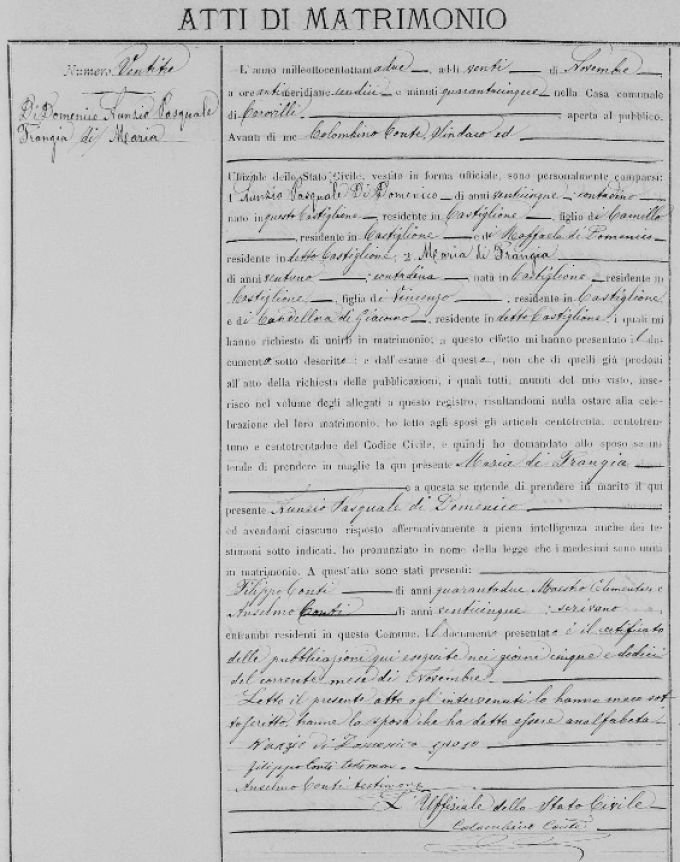 ATTI DI MATRIMONIO
Numero Ventitre
Di Domenico Nunzio Pasquale
Frangia di Maria
L'anno milleottocentottantadue, addi venti di Novembre,
a ore antimeridiane undici e minuti quarantacinque, nella Casa comunale
di Carovilli aperta al pubblico.
Avanti di me Colombino Conte, Sindaco ed
Uffiziale dello Stato Civile, vestito in forma officiale, sono personalmente comparsi:
1. Nunzio Pasquale Di Domenico di anni venticinque, contadino
nato in questo Castiglione, residente in Castiglione, figlio di Camillo
, residente in Castiglione e di Raffaela di Domenico
residente in detto Castiglione; 2. Maria di Frangia
di anni ventuno contadina, nata in Castiglione residente in
Castiglione, figlia di Vincenzo, residente in Castiglione
e di Candellora di Giacomo, residente in detto Castiglione; i quali mi
hanno richiesto di unirli in matrimonio; a questo effetto mi hanno presentato il do-
cumento sotto descritto; e dall'esame di questo, non che di quelli già prodotti
all'atto della richiesta delle pubblicazioni, i quali tutti, muniti del mio visto, inse-
risco nel volume degli allegati a questo registro, risultandomi nulla ostare alla cele-
brazione del loro matrimonio, ho letto agli sposi gli articoli centotrenta, centotren-
tuno e centotrentadue del Codice Civile, e quindi ho domandato allo sposo se in-
tende di prendere in moglie la qui presente Maria di Frangia
e a questa se intende di prendere in marito il qui
presente Nunzio Pasquale di Domenico
ed avendomi ciascuno risposto affermativamente a piena intelligenza anche dei te-
stimoni sotto indicati, ho pronunziato in nome della legge che i medesimi sono uniti
in matrimonio. A quest'atto sono stati presenti:
Filippo Conti di anni quarantadue Maestro Elementare e
Anselmo Conti di anni venticinque scrivano,
entrambi residenti in questo Comune. Il documento presentato è il certificato
delle pubblicazioni qui eseguite nei giorni cinque e dodici
del corrente mese di Novembre.
Letto il presente atto agl'intervenuti lo hanno meco sot-
toscritto, tranne la sposa che ha detto essere analfabeta.
Nunzio di Domenico sposo
Filippo Conti testimone
Anselmo Conti testimone
L'Uffiziale dello Stato Civile
Colombino Conte